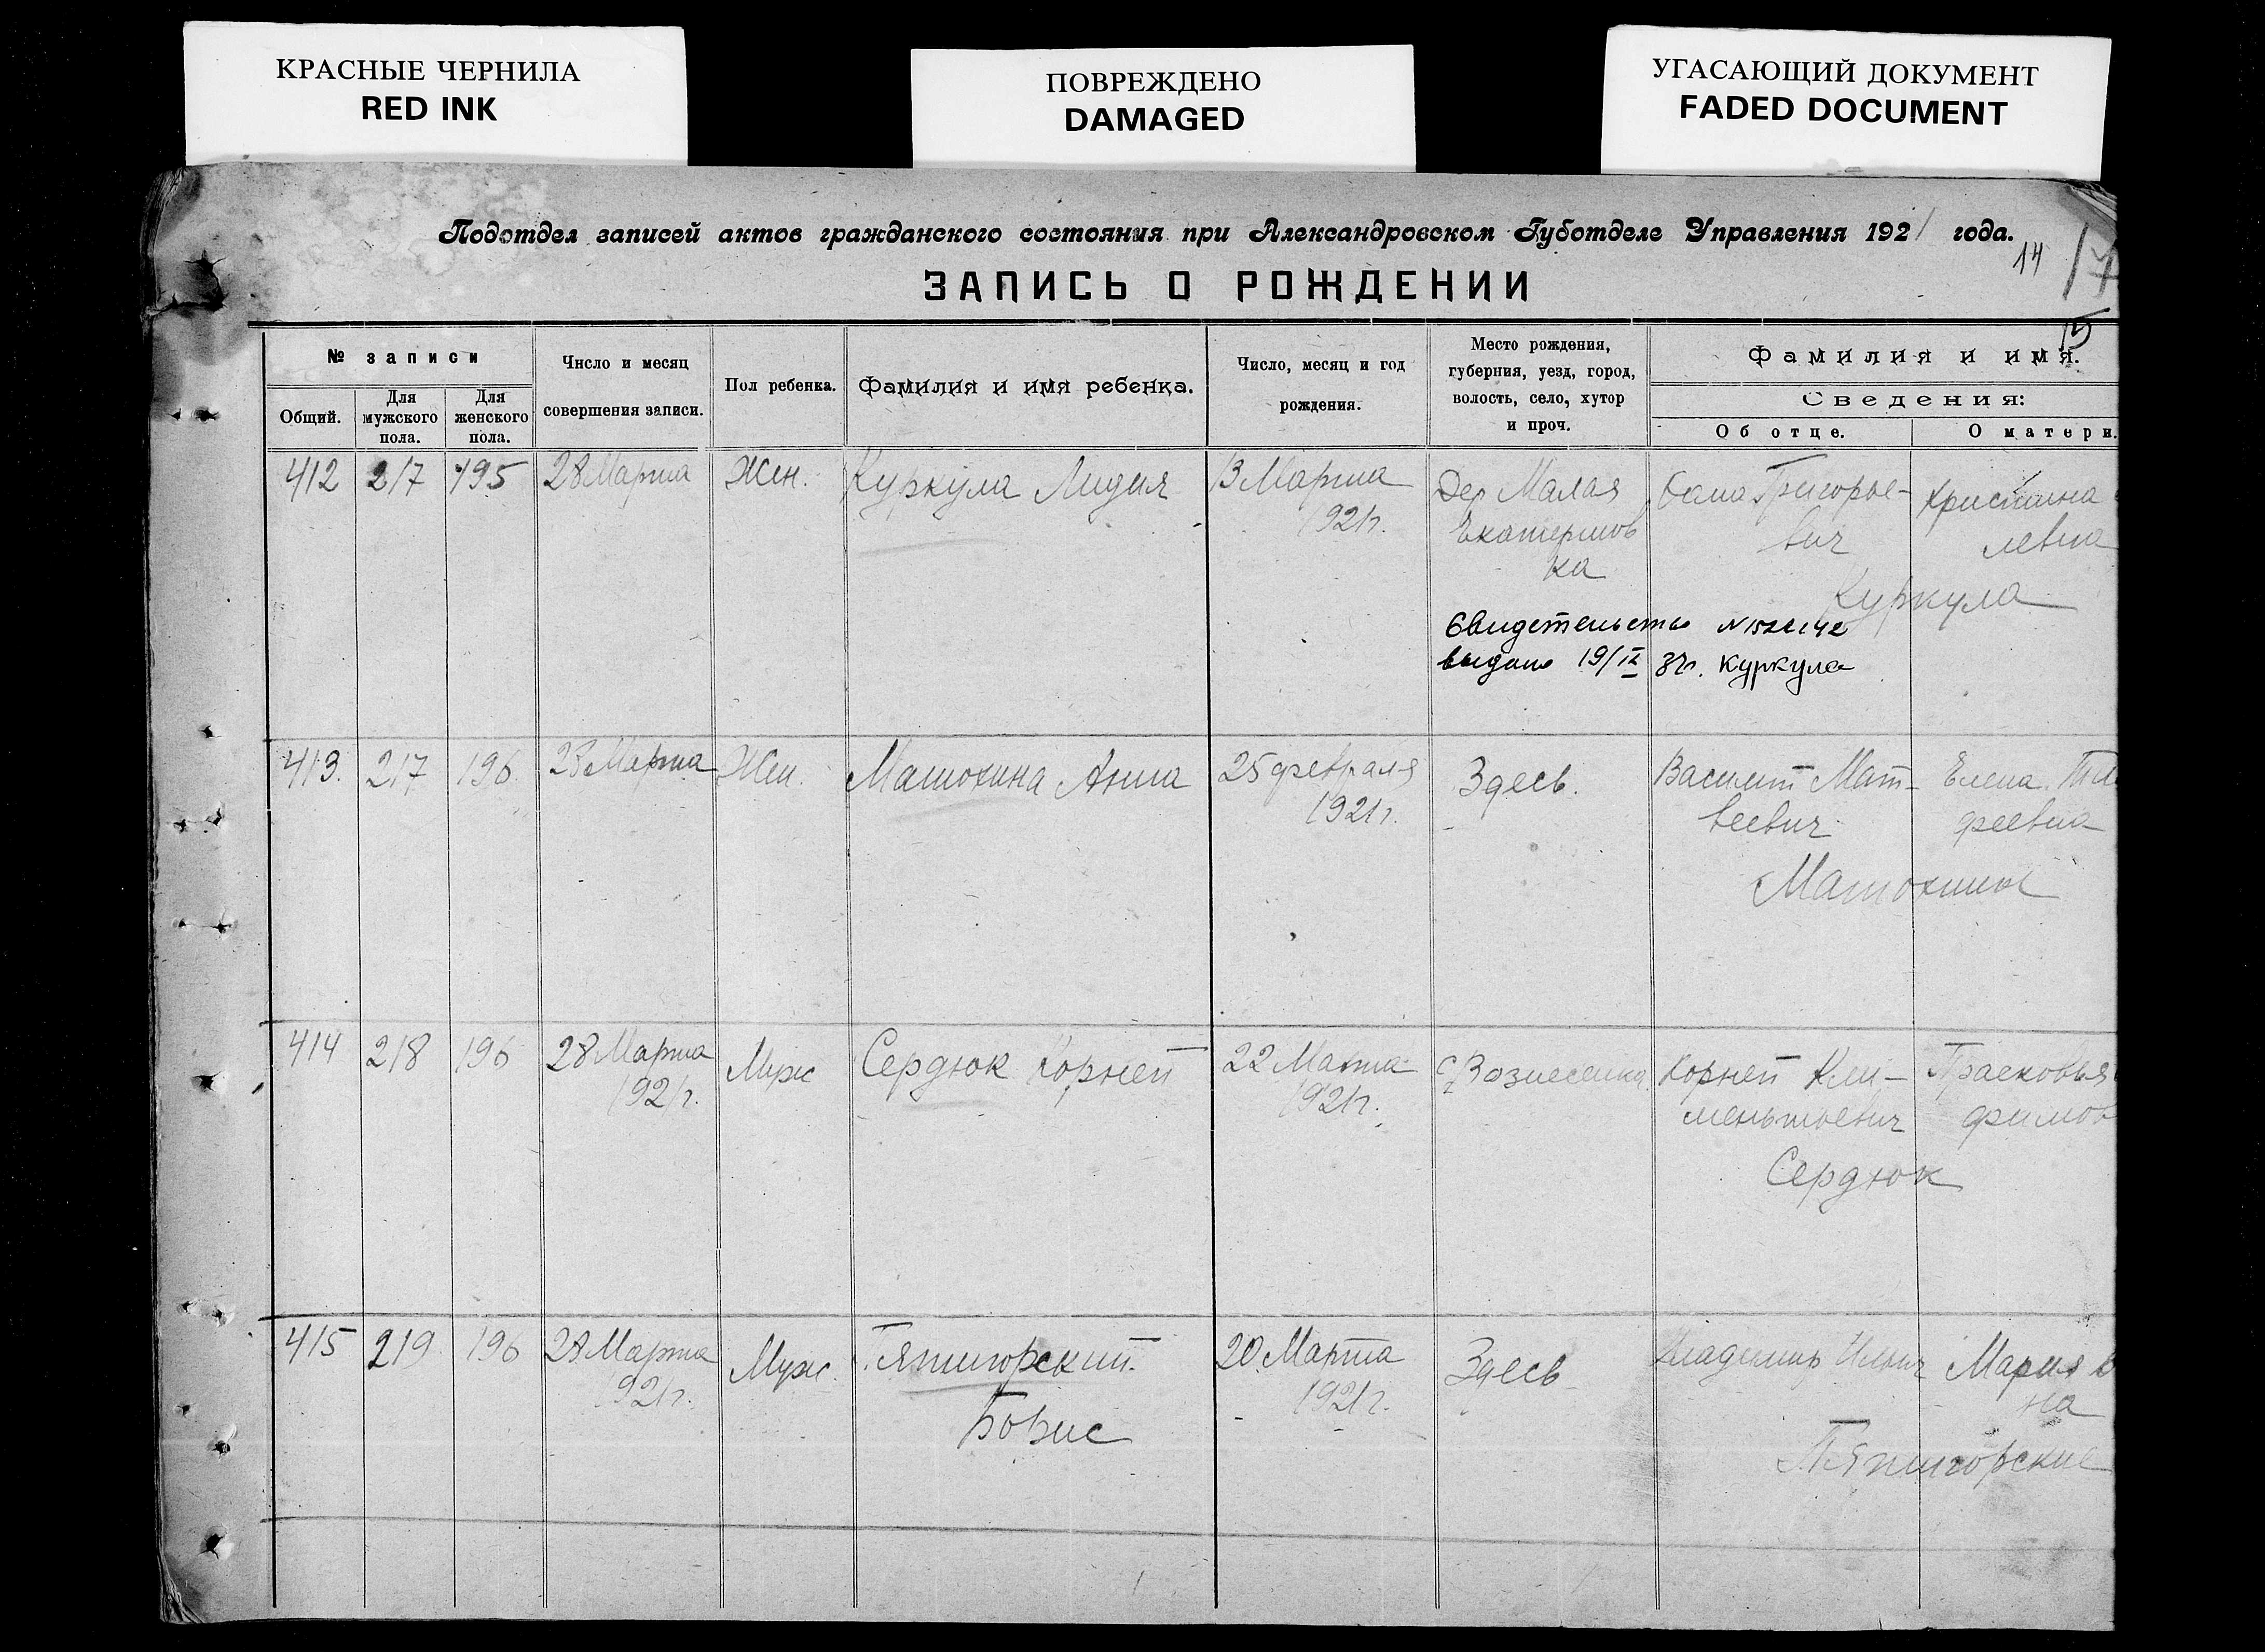 КРАСНЫЕ ЧЕРНИЛА
RED INK
ПОВРЕЖДЕНО
DAMAGED
УГАСАЮЩИЙ ДОКУМЕНТ
FADED DOCUMENT
Подотдел записей актов гражданского состояния при Александровском Губотделе Управления 1921 года.
14
ЗАПИСЬ О РОЖДЕНИИ
15
№ записи
Общий.
Для мужского пола.
Для женского пола.
Число и месяц
совершения записи.
Пол ребенка.
Фамилия и имя ребенка.
Число, месяц и год
рождения.
Место рождения,
губерния, уезд, город,
волость, село, хутор
и проч.
Фамилия и имя.
Сведения:
Об отце.
О матери.
412 217 195 28 Марта Жен. Куркула Лидия 13 Марта Дер Малая Григорье- Христина
1921г. Екатеринов вич левна
ка
Куркула
Свидетельство
выдано 19/IX Куркула
413. 217 196 Марта Жен. Матюхина Анна 25 февраля Здесь. Василий Мат- Елена
1921г. веевич феевна
Матюхины
414 218 196 28 Марта Муж Сердюк Корней 22 Марта с. Вознесенка Корней Кли- Прасковья
1921г. 1921г. ментьевич фимов
Сердюк
415 219 196 28 Марта Муж. Пятигорский 20 Марта Здесь Владимир Ильич Мария
1921г. Борис 1921г. на
Пятигорские